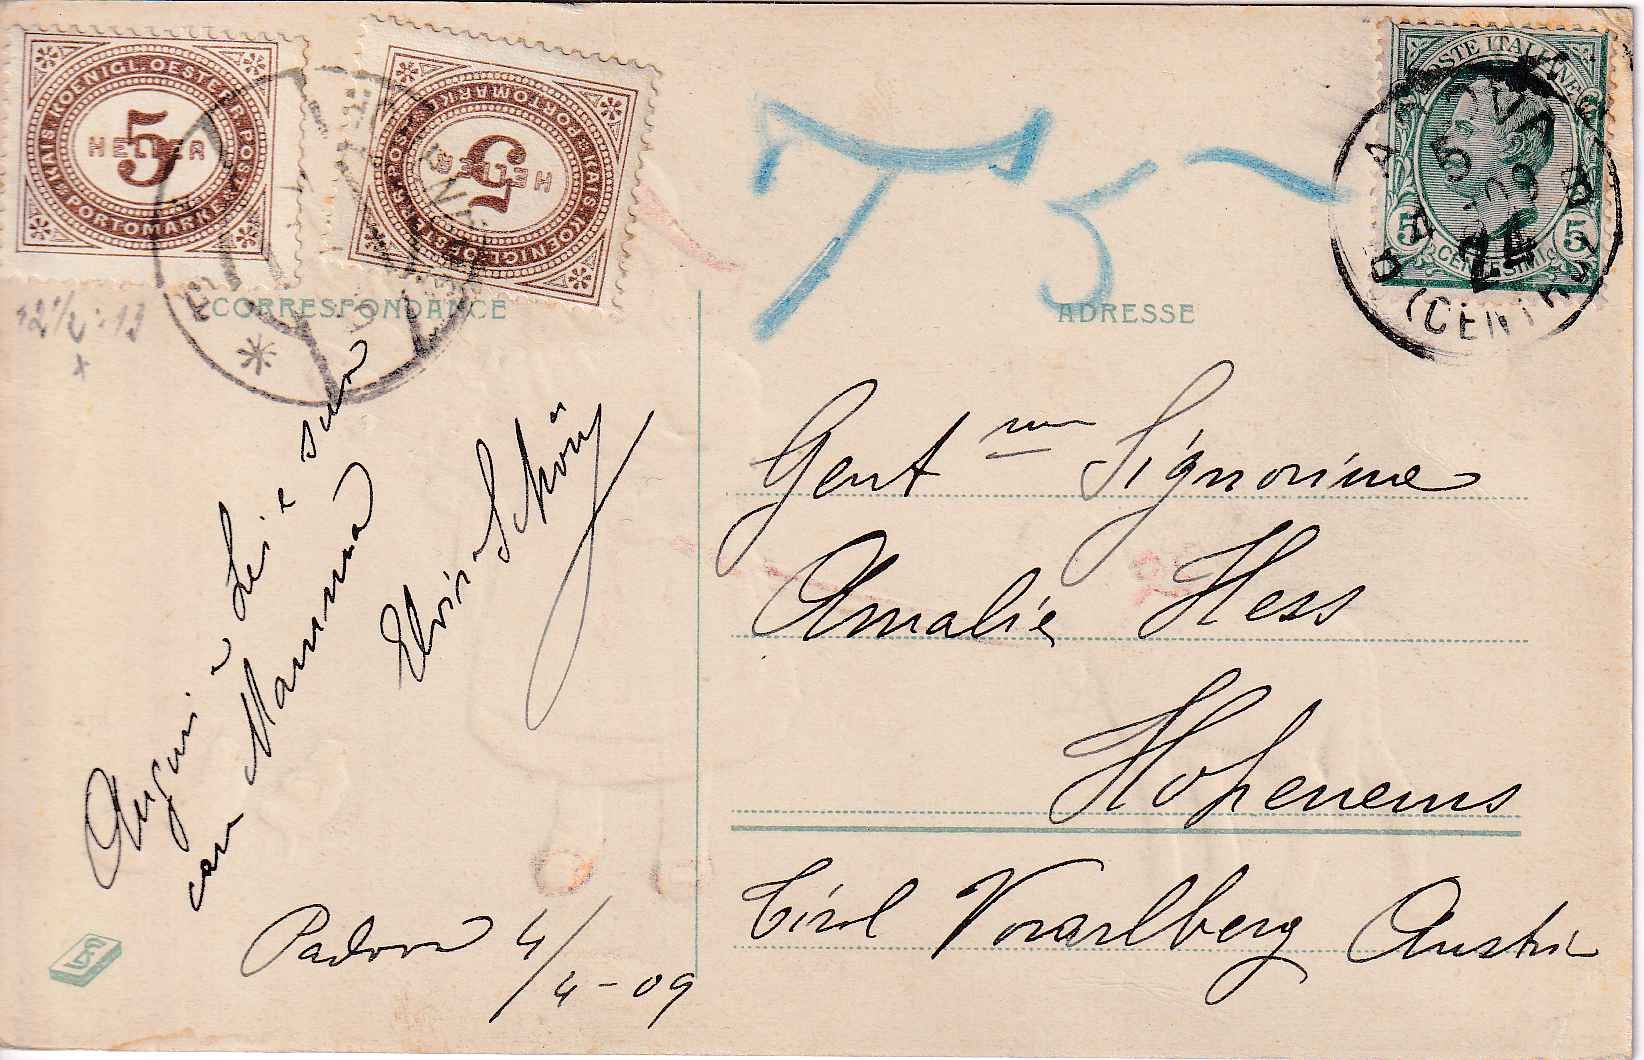 KAIS. KOENIGL. OESTERR. POST
PORTOMARKE
5
HELLER
KAIS. KOENIGL. OESTERR. POST
PORTOMARKE
5
HELLER
T 5
POSTE ITALIANE
5 CENTESIMI 5
PADOVA
5 4 09
24
(CENTRO)
CORRESPONDANCE
ADRESSE
Auguri a Lei e sua
cara Mamma
Elvira Schön
Padova 4/4-09
Gent ma Signorina
Amalie Hess
Hohenems
Tirol Vorarlberg Austria